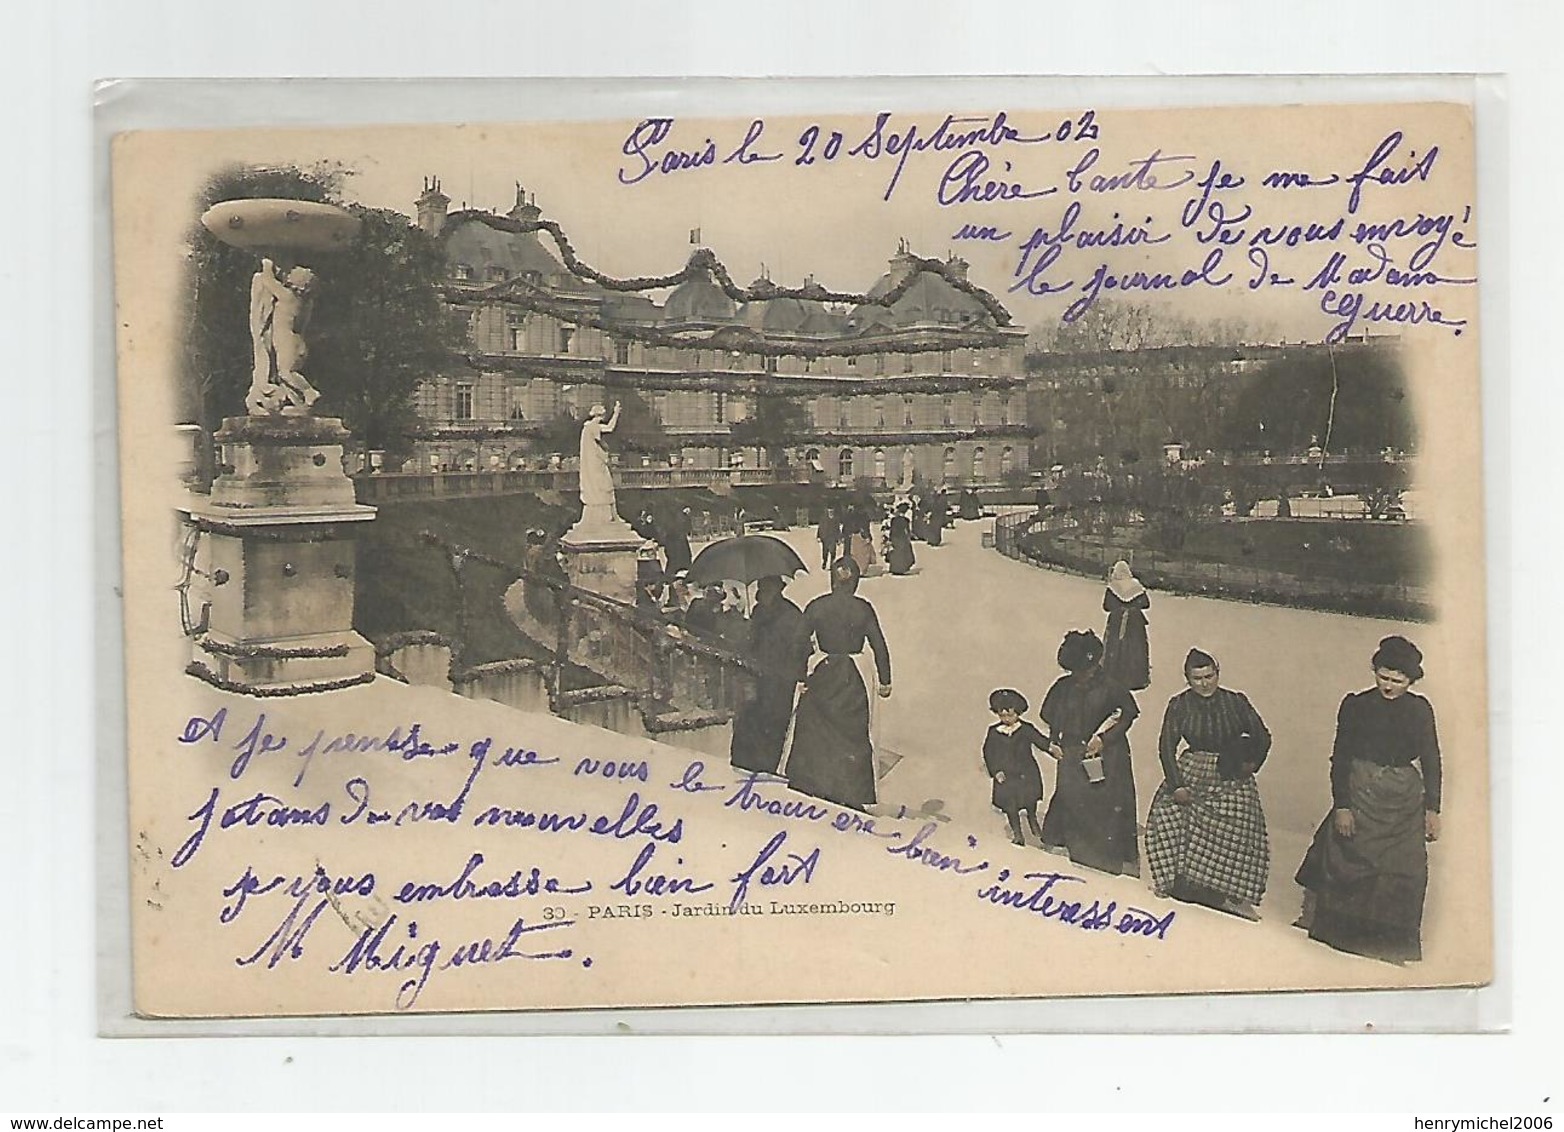 Paris le 20 Septembre 02
Chère tante je me fait
un plaisir de vous envoyé
le journal de Madame
Guerre.
et je pensse que vous le trouveré bien interessent
jatans de vos nouvelles
je vous embrasse bien fort
M Miguet.
30 - PARIS - Jardin du Luxembourg
henrymichel2006